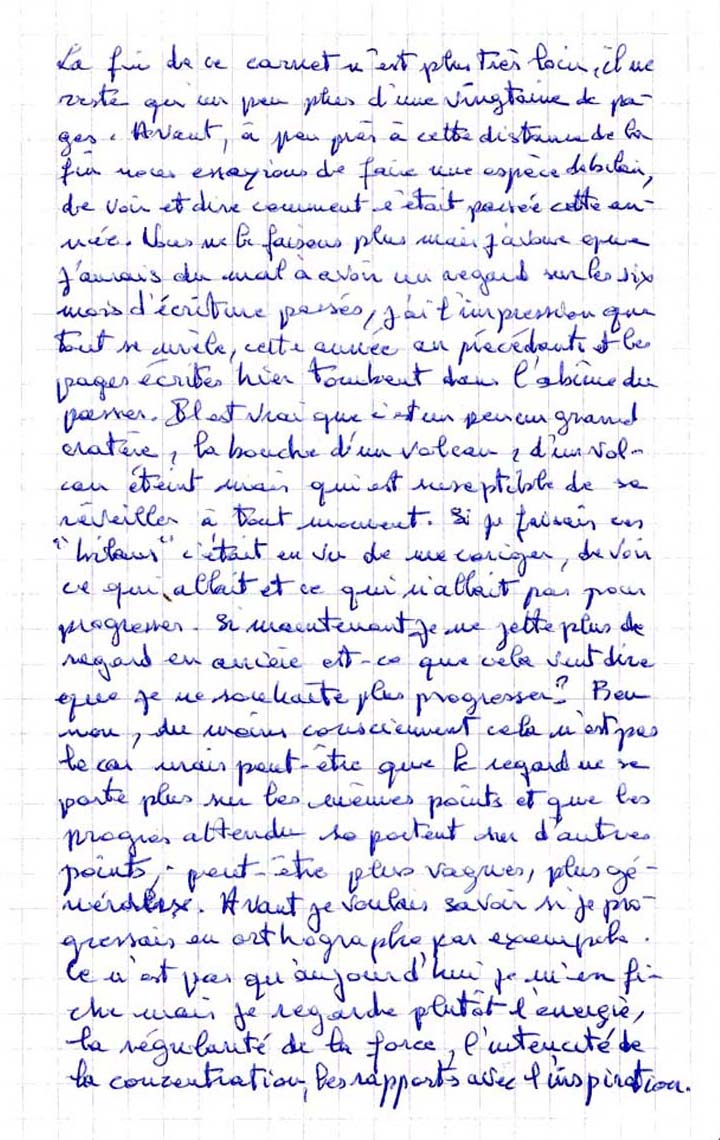 La fin de ce carnet n'est plus très loin, il ne
reste qu'un peu plus d'une vingtaine de pa-
ges. Avant, à peu près à cette distance de la
fin nous essayions de faire une espèce de bilan,
de voir et dire comment s'était passée cette an-
née. Nous ne le faisons plus mais j'avoue que
j'aurais du mal à avoir un regard sur les six
mois d'écriture passés, j'ai l'impression que
tout se mêle, cette année au précédente et les
pages écrites hier tombent dans l'abîme du
passer. Il est vrai que c'est un peu un grand
cratère, la bouche d'un volcan, d'un vol-
can éteint mais qui est suseptible de se
réveiller à tout moment. Si je faisais ces
"bilans" c'était en vu de me coriger, de voir
ce qui allait et ce qui n'allait pas pour
progresser. Si maintenant je ne jette plus de
regard en arrière est-ce que cela veut dire
que je ne souhaite plus progresser? Ben
non, du moins consciemment cela n'est pas
le cas mais peut-être que le regard ne se
porte plus sur les mêmes points et que les
progres attendu se portent sur d'autres
points, peut-être plus vagues, plus gé-
néraux. Avant je voulais savoir si je pro-
gressais en orthographe par exemple.
Ce n'est pas qu'aujourd'hui je m'en fi-
che mais je regarde plutôt l'énergie,
la régularité de la force, l'intencité de
la concentration, les rapports avec l'inspiration.